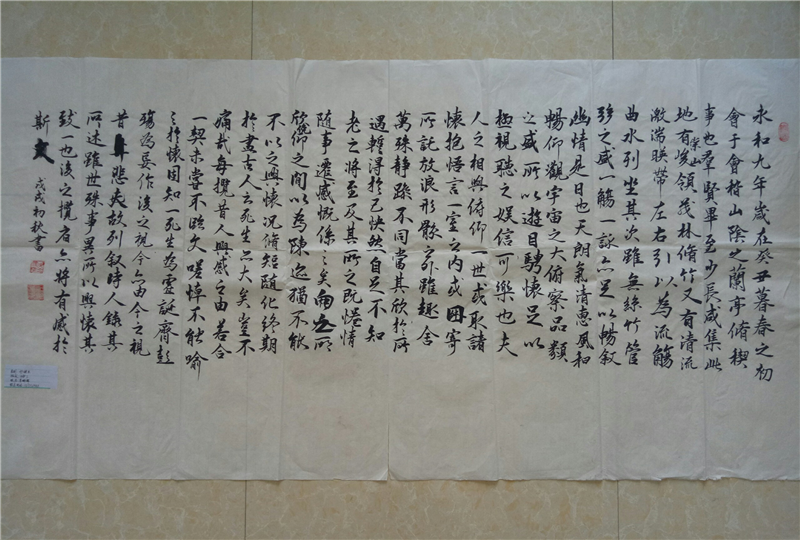 永和九年歲在癸丑暮春之初
會于會稽山陰之蘭亭脩稧
事也羣賢畢至少長咸集此
地有崇山峻領茂林脩竹又有清流
激湍暎帶左右引以為流觴
曲水列坐其次雖無絲竹管
弦之盛一觴一詠亦足以暢敘
幽情是日也天朗氣清惠風和
暢仰觀宇宙之大俯察品類
之盛所以遊目騁懷足以
極視聽之娛信可樂也夫
人之相與俯仰一世或取諸
懷抱悟言一室之內或因寄
所託放浪形骸之外雖趣舍
萬殊靜躁不同當其欣於所
遇暫得於己快然自足不知
老之將至及其所之既惓情
隨事遷感慨係之矣向之所
欣俛仰之間以為陳迹猶不能
不以之興懷況脩短隨化終期
於盡古人云死生亦大矣豈不
痛哉每攬昔人興感之由若合
一契未嘗不臨文嗟悼不能喻
之於懷固知一死生為虛誕齊彭
殤為妄作後之視今亦由今之視
昔悲夫故列敘時人錄其
所述雖世殊事異所以興懷其
致一也後之攬者亦將有感於
斯文 戊戌初秋書